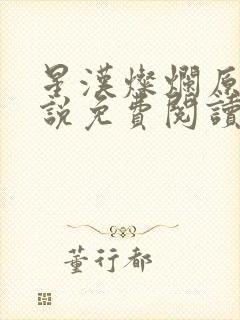 星漢燦爛原
說免費閱讀
董行都